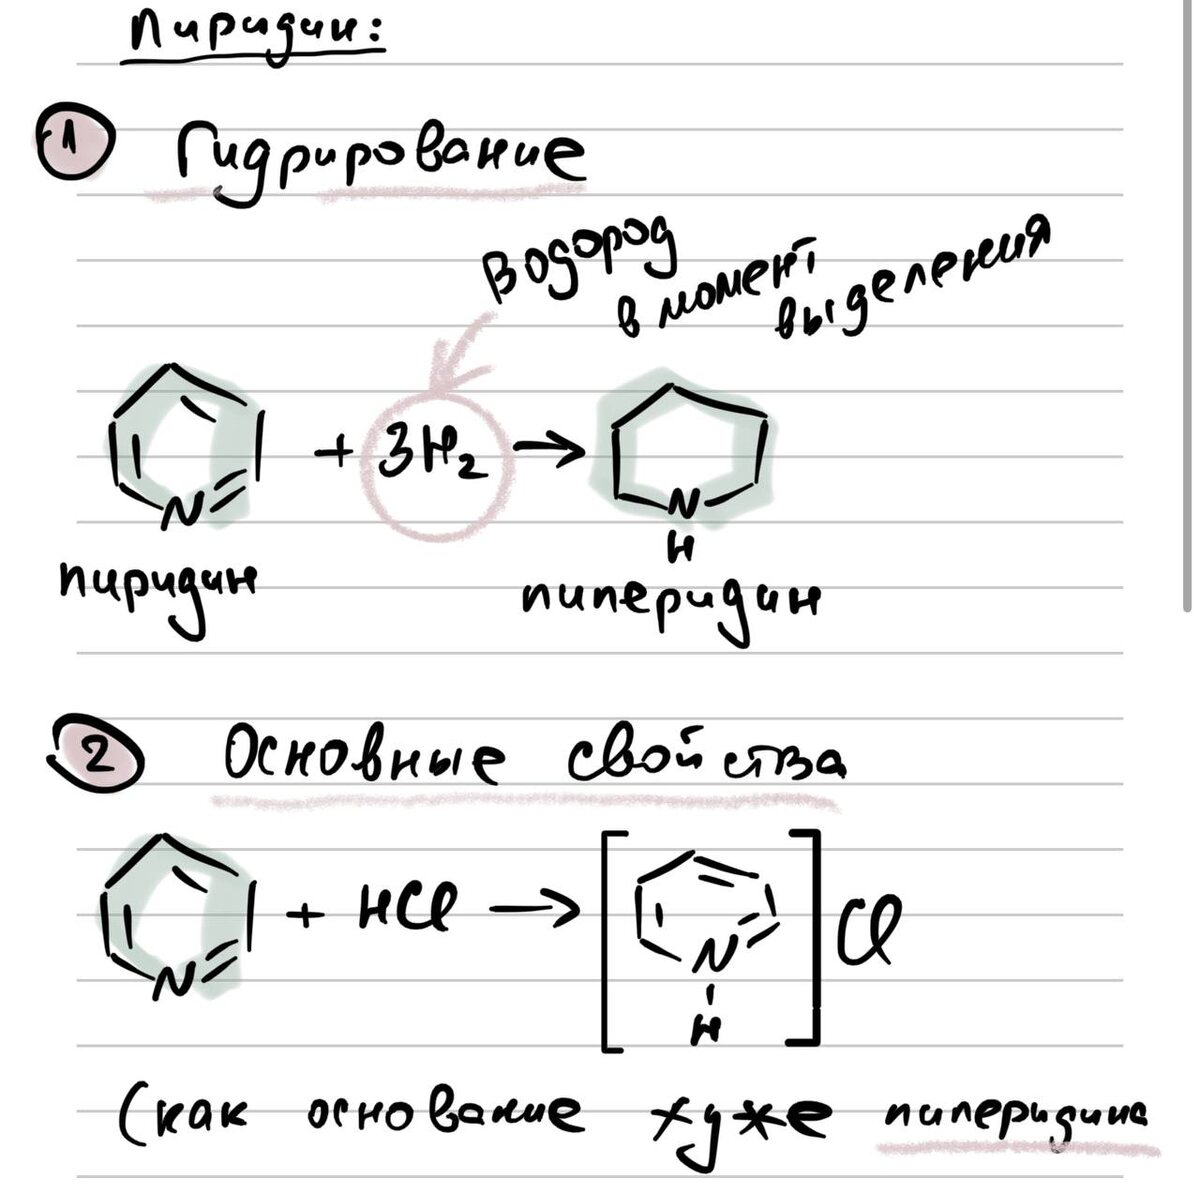 Пиридин:
1 Гидрирование
Водород
в момент
выделения
N + 3H₂ → N
H
пиридин пиперидин
2 Основные свойства
N + HCl → [N
H] Cl
(как основание хуже пиперидина